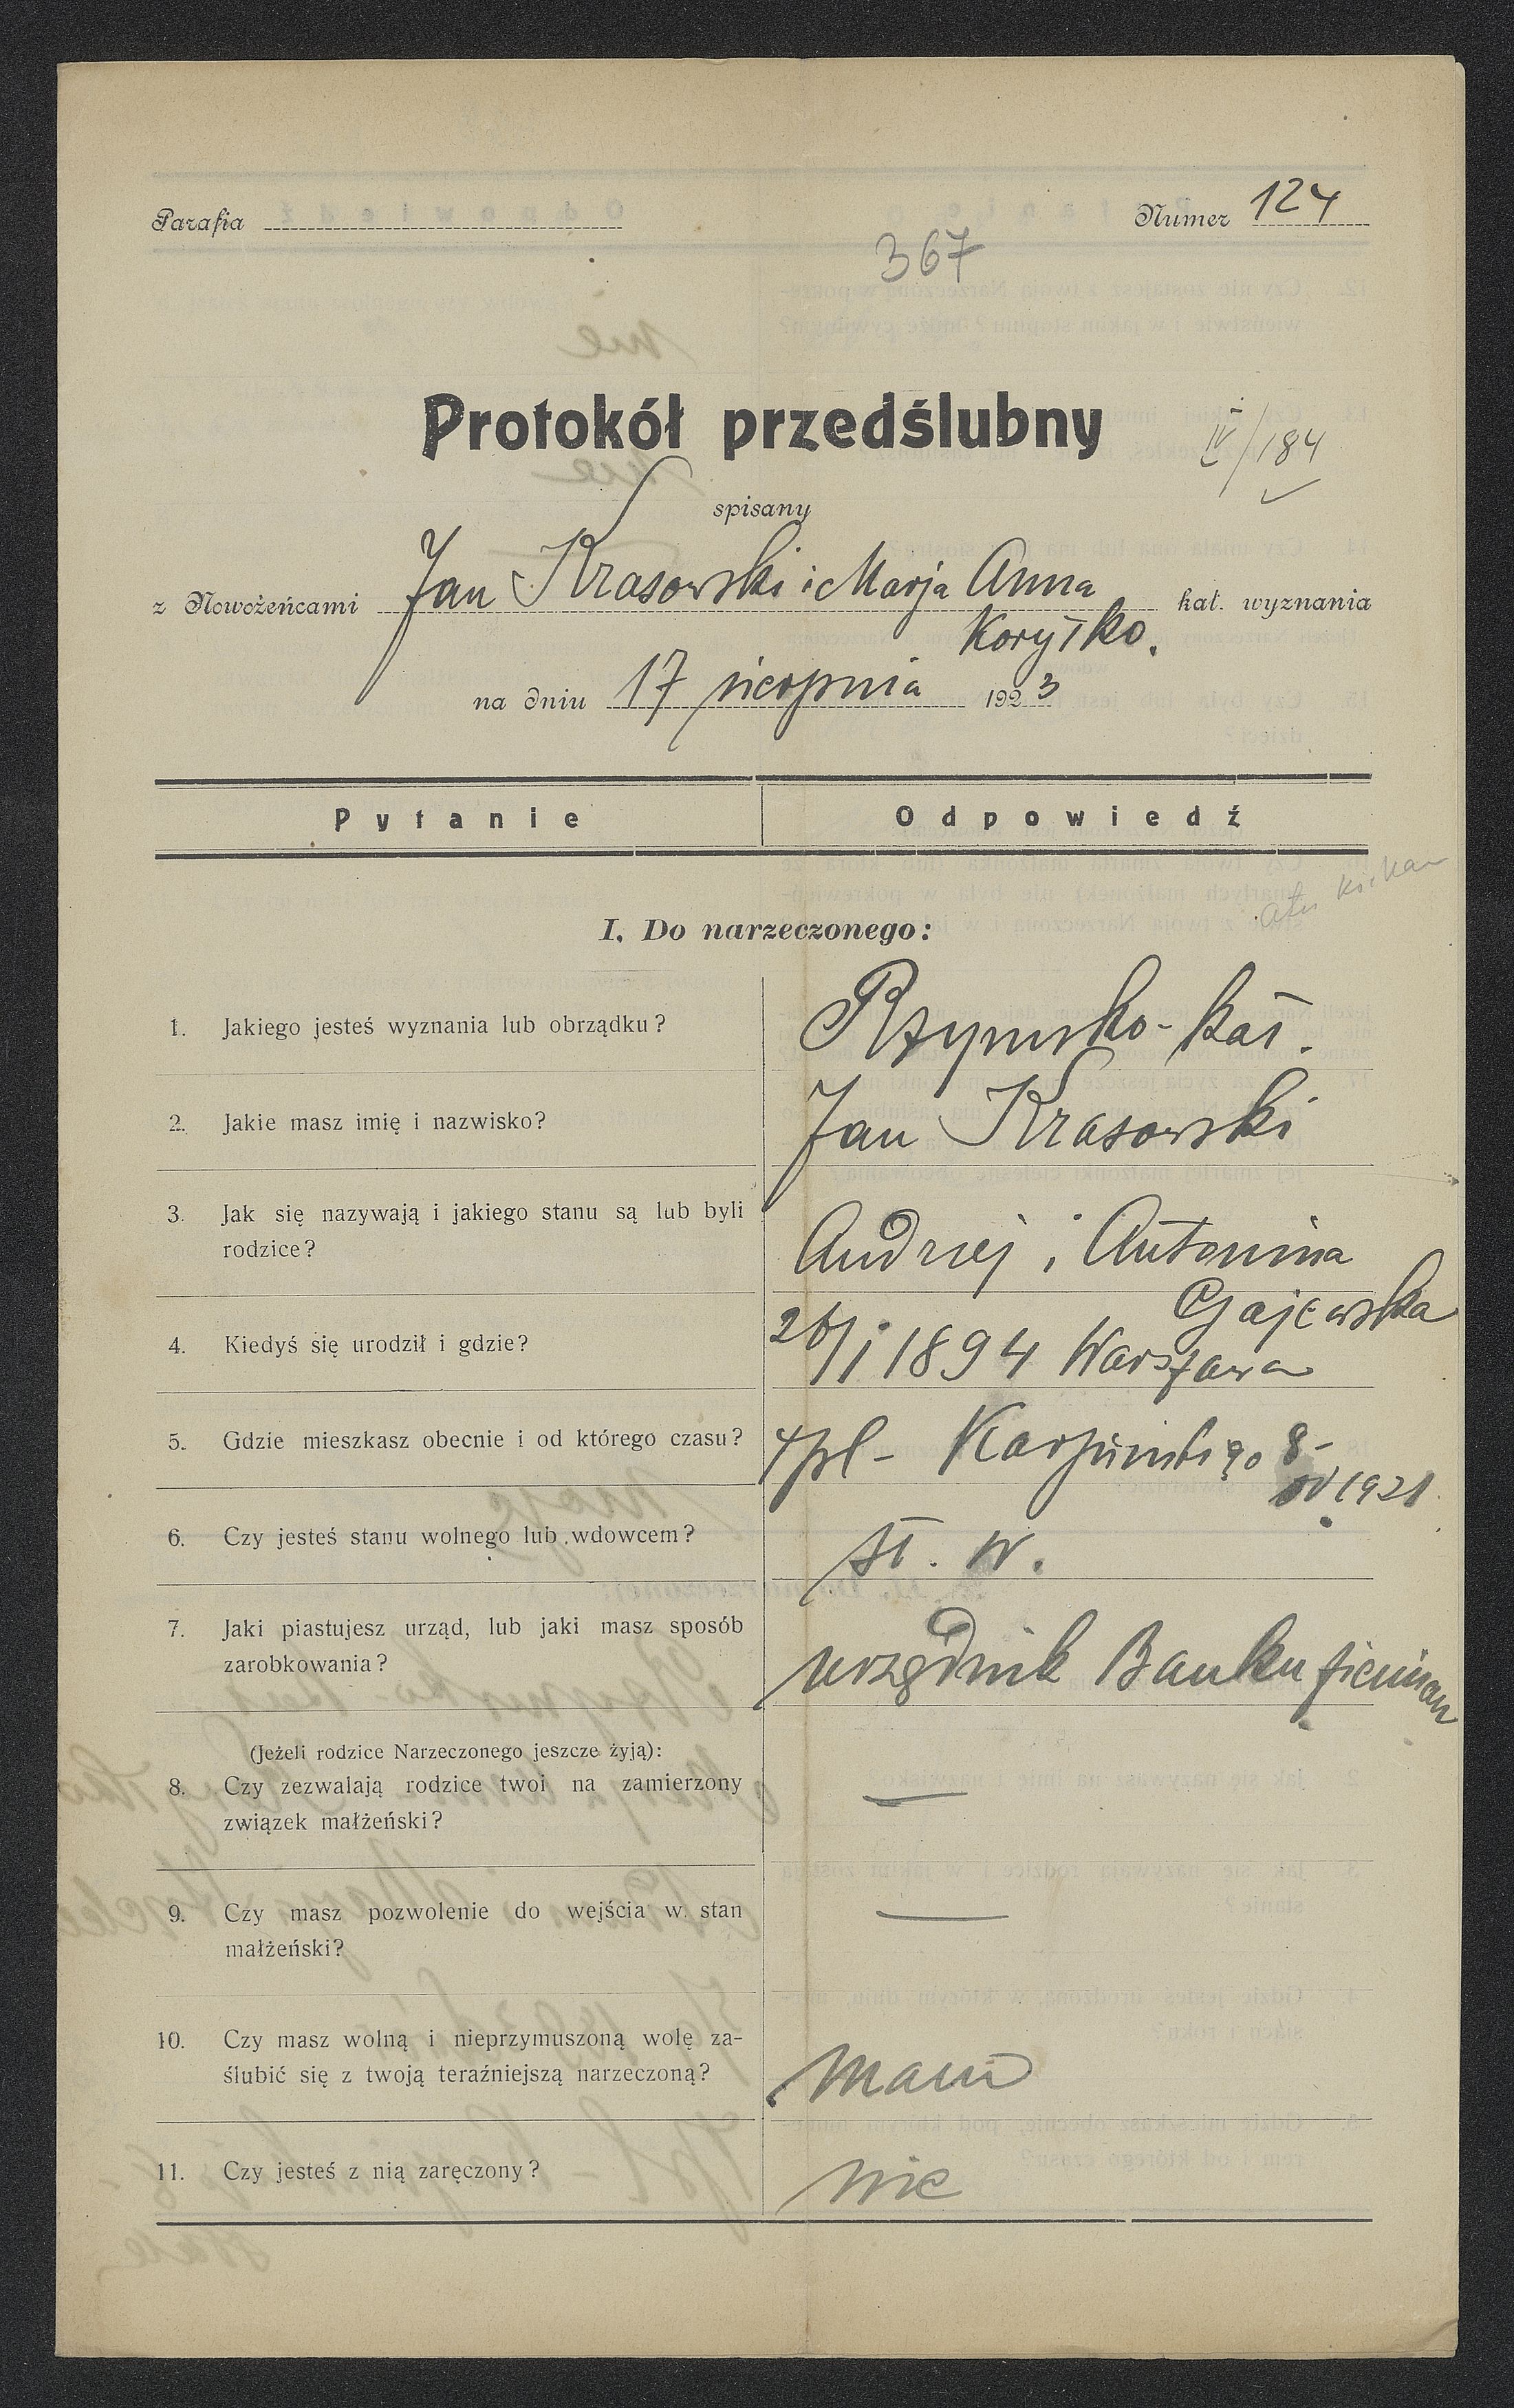 Parafia
Numer 124
367
Protokół przedślubny
IV/184
spisany
z Nowożeńcami Jan Krasowski i Marja Anna kat. wyznania
Korytko.
na dniu 17 sierpnia 1923
Pytanie Odpowiedź
I. Do narzeczonego:
1. Jakiego jesteś wyznania lub obrządku? Rzymsko-kat.
2. Jakie masz imię i nazwisko? Jan Krasowski
3. Jak się nazywają i jakiego stanu są lub byli
rodzice? Andrzej i Antonina
Gajewska
4. Kiedyś się urodził i gdzie? 26/I 1894 Warszawa
5. Gdzie mieszkasz obecnie i od którego czasu? tpl - Karpińskiego 8-
od 1921
6. Czy jesteś stanu wolnego lub wdowcem? st. w.
7. Jaki piastujesz urząd, lub jaki masz sposób
zarobkowania? urzędnik Banku
(Jeżeli rodzice Narzeczonego jeszcze żyją):
8. Czy zezwalają rodzice twoi na zamierzony
związek małżeński? —
9. Czy masz pozwolenie do wejścia w stan
małżeński? —
10. Czy masz wolną i nieprzymuszoną wolę za-
ślubić się z twoją teraźniejszą narzeczoną? mam
11. Czy jesteś z nią zaręczony? nie